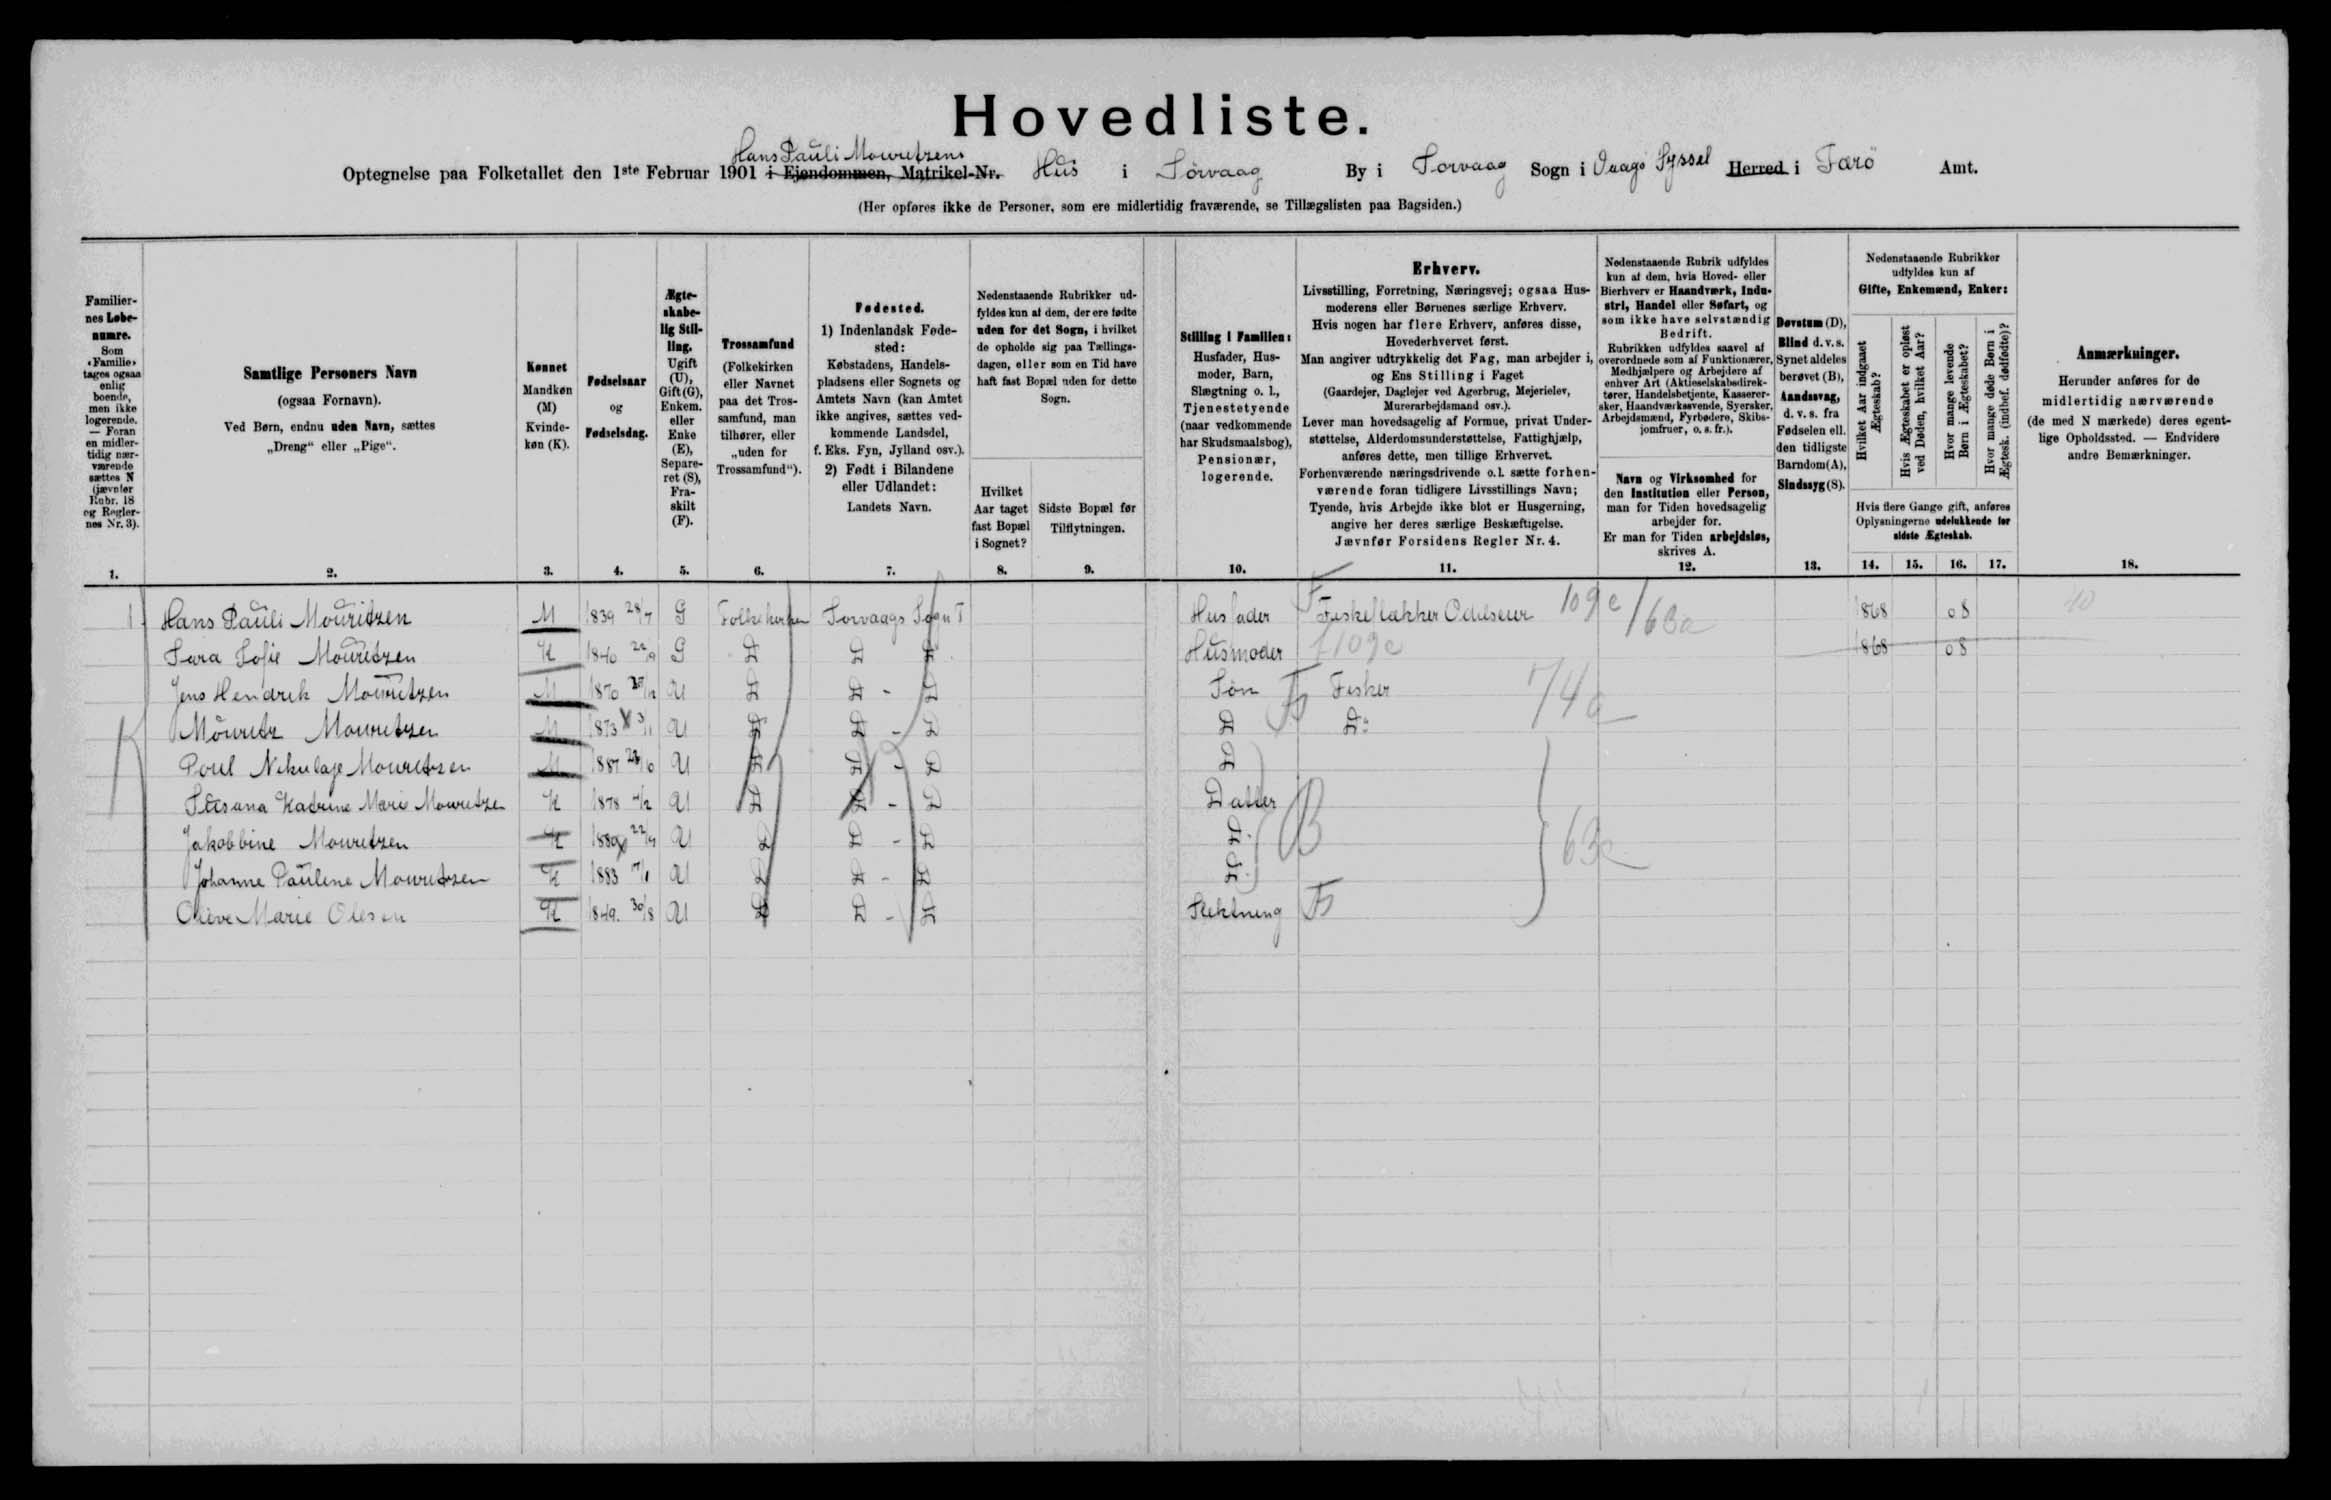 Hovedliste.
Hans Pauli Mouritzens
Optegnelse paa Folketallet den 1ste Februar 1901 i Ejendommen, Matrikel-Nr. Hus i Sörvaag By i Sorvaag Sogn i Vaagö Syssel Herred i Færö Amt.
(Her opføres ikke de Personer, som ere midlertidig fraværende, se Tillægslisten paa Bagsiden.)
Familiernes Løbenumre.
Som «Familie» tages ogsaa enlig boende, men ikke logerende. — Foran en midlertidig nærværende sættes N (jævnfør Rubr. 18 og Reglernes Nr. 3).
1.
Samtlige Personers Navn
(ogsaa Fornavn).
Ved Børn, endnu uden Navn, sættes
„Dreng“ eller „Pige“.
2.
Kønnet
Mandkøn (M)
Kvindekøn (K).
3.
Fødselsaar
og
Fødselsdag.
4.
Ægteskabelig Stilling.
Ugift (U), Gift (G), Enkem. eller Enke (E), Separeret (S), Fraskilt (F).
5.
Trossamfund
(Folkekirken eller Navnet paa det Trossamfund, man tilhører, eller „uden for Trossamfund“).
6.
Fødested.
1) Indenlandsk Fødested:
Købstadens, Handelspladsens eller Sognets og Amtets Navn (kan Amtet ikke angives, sættes vedkommende Landsdel, f. Eks. Fyn, Jylland osv.).
2) Født i Bilandene eller Udlandet:
Landets Navn.
7.
Nedenstaaende Rubrikker udfyldes kun af dem, der ere fødte uden for det Sogn, i hvilket de opholde sig paa Tællingsdagen, eller som en Tid have haft fast Bopæl uden for dette Sogn.
Hvilket Aar taget fast Bopæl i Sognet?
8.
Sidste Bopæl før Tilflytningen.
9.
Stilling i Familien:
Husfader, Husmoder, Barn, Slægtning o. l., Tjenestetyende (naar vedkommende har Skudsmaalsbog), Pensionær, logerende.
10.
Erhverv.
Livsstilling, Forretning, Næringsvej; ogsaa Husmoderens eller Børnenes særlige Erhverv.
Hvis nogen har flere Erhverv, anføres disse, Hovederhvervet først.
Man angiver udtrykkelig det Fag, man arbejder i, og Ens Stilling i Faget
(Gaardejer, Daglejer ved Agerbrug, Mejerielev, Murerarbejdsmand osv.).
Lever man hovedsagelig af Formue, privat Understøttelse, Alderdomsunderstøttelse, Fattighjælp, anføres dette, men tillige Erhvervet.
Forhenværende næringsdrivende o. l. sætte forhenværende foran tidligere Livsstillings Navn;
Tyende, hvis Arbejde ikke blot er Husgerning, angive her deres særlige Beskæftigelse.
Jævnfør Forsidens Regler Nr. 4.
11.
Nedenstaaende Rubrik udfyldes kun af dem, hvis Hoved- eller Bierhverv er Haandværk, Industri, Handel eller Søfart, og som ikke have selvstændig Bedrift.
Rubrikken udfyldes saavel af overordnede som af Funktionærer, Medhjælpere og Arbejdere af enhver Art (Aktieselskabsdirektører, Handelsbetjente, Kasserersker, Haandværkssvende, Syersker, Arbejdsmænd, Fyrbødere, Skibsjomfruer, o. s. fr.).
Navn og Virksomhed for den Institution eller Person, man for Tiden hovedsagelig arbejder for.
Er man for Tiden arbejdsløs, skrives A.
12.
Døvstum (D), Blind d. v. s. Synet aldeles berøvet (B), Aandssvag, d. v. s. fra Fødselen ell. den tidligste Barndom (A), Sindssyg (S).
13.
Nedenstaaende Rubrikker udfyldes kun af
Gifte, Enkemænd, Enker:
Hvilket Aar indgaaet Ægteskab?
Hvis Ægteskabet er opløst ved Døden, hvilket Aar?
Hvor mange levende Børn i Ægteskabet?
Hvor mange døde Børn i Ægtesk. (indbef. dødfødte)?
Hvis flere Gange gift, anføres Oplysningerne udelukkende for sidste Ægteskab.
14. 15. 16. 17.
Anmærkninger.
Herunder anføres for de midlertidig nærværende (de med N mærkede) deres egentlige Opholdssted. — Endvidere andre Bemærkninger.
18.
1 Hans Pauli Mouritzen M 1839 28/7 G Folkekirken Sorvaags Sogn Husfader 109 c 63a 1868 08 10
Sara Sofie Mouritzen K 1840 22/9 G D D D Husmoder f 109 c 1868 08
Jens Hendrik Mouritzen M 1870 U D D - D Sön Fisker 74 a
Mouritz Mouritzen M 1873 3/11 U D D - D D Do
Poul Nikulaje Mouritzen M 1887 U D D - D D
Susana Katrine Marie Mouritzen K 1878 4/2 U D D - D Datter
Jakobbine Mouritzen K 1880 22/9 U D D - D D B 63a
Johanne Pauline Mouritzen K 1883 U D D - D D
Marie Olesen K 1849. 30/8 U D D - D Slektning Fs